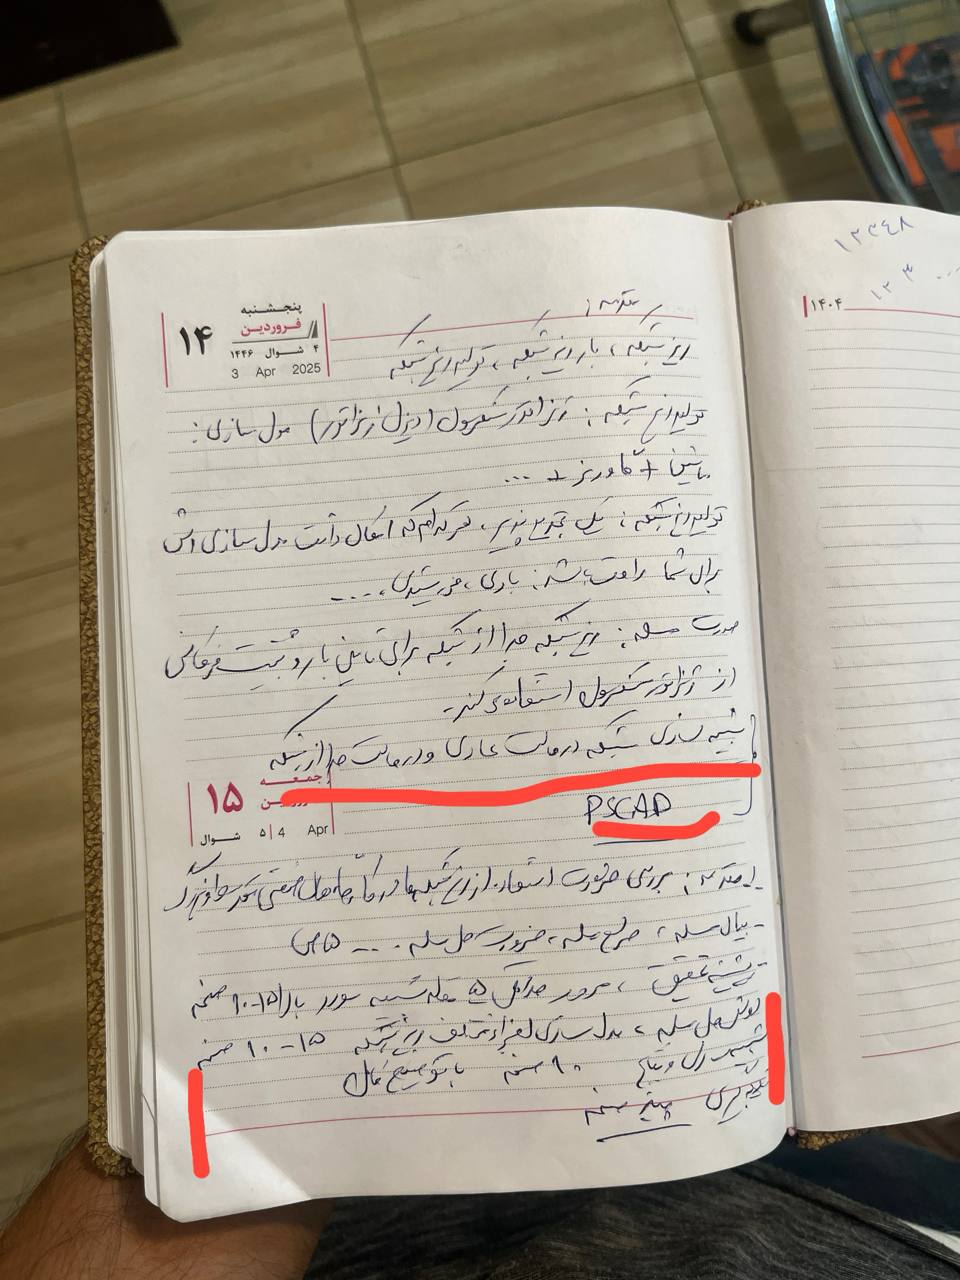 ۱۴
پنجشنبه
فروردین
۴ شوال ۱۴۴۶
3 Apr 2025
مقدمه :
ریزشبکه ، بار ریزشبکه ، تولید ریزشبکه
تولید ریزشبکه : ژنراتور سنکرون (دیزل ژنراتور) مدل سازی :
ماشین + گاورنر + ...
تولید ریزشبکه : یک تجدیدپذیر ، هر کدام که امکان داشت مدل سازی اش
برای شما راحت باشد : بادی ، خورشیدی ، ...
صورت مسله : ریزشبکه جدا از شبکه برای تامین بار و تثبیت فرکانس
از ژنراتور سنکرون استفاده می کند .
شبیه سازی شبکه در حالت عادی و در حالت جدا از شبکه
۱۵
جمعه
۵ شوال
4 Apr
PSCAD
مقدمه : بررسی ضرورت استفاده از ریزشبکه ها در کارخانه های صنعتی
- بیان مسله ، طرح مسله ، ضرورت حل مسله ... ۵ ص
- پیشینه تحقیق ، مرور حداقل ۵ مقاله شبیه مورد بالا ۱۵-۱۰ صفحه
روش حل مسله ، مدل سازی اجزاء مختلف ریزشبکه ۱۵-۱۰ صفحه
شبیه سازی و نتایج ۱۰ صفحه با توضیح کامل
نتیجه گیری چند صفحه
۱۴۰۴
۱۲۳۴۸
۱۲۳ ...